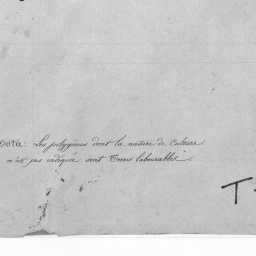 Nota: Les polygones dont la nature de Culture
n'est pas indiquée sont Terres labourables.
T